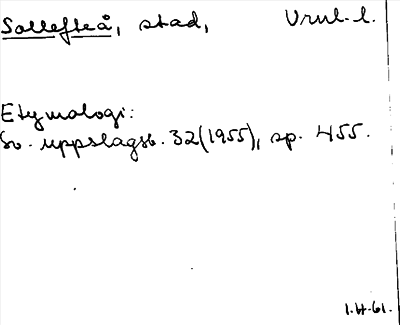 Sollefteå, stad, Vrnl. l.
Etymologi:
Sv. uppslagsb. 32(1955), sp. 455.
1.H.61.